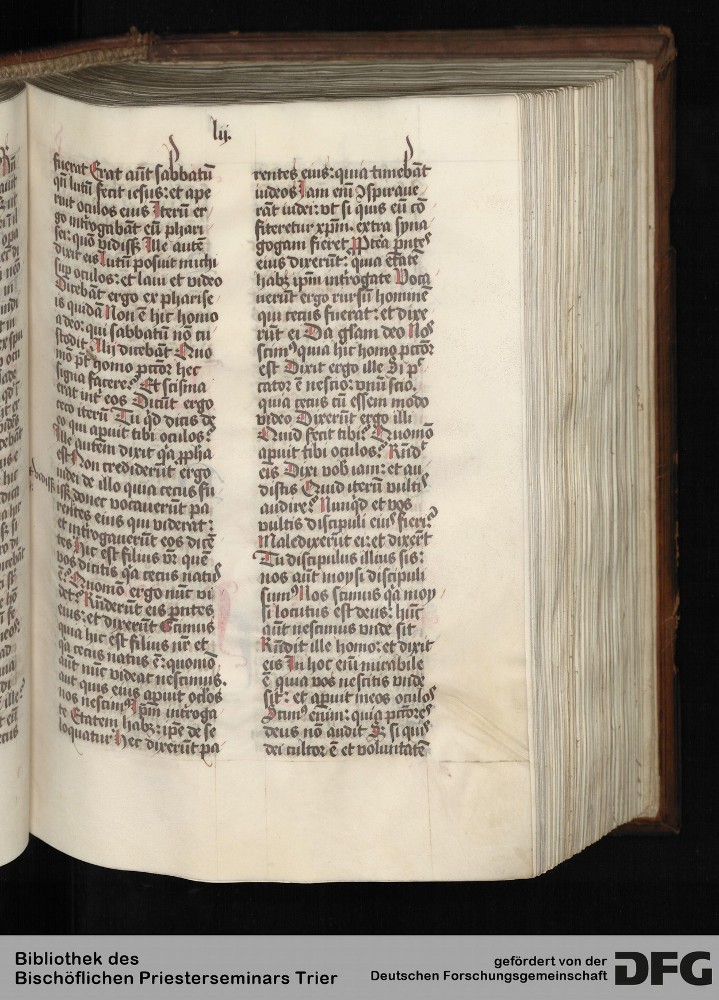 lij.
fuerat Erat aūt sabbatū
qn̄ lutū fecit iesus: et ape
ruit oculos eius Iterū er
go int̄rogabāt eū phari
sei: quō vidiss; Ille autē
dixit eis Lutū posuit michi
sup oculos: et laui et video
Dicebāt ergo ex pharise
is quidā Non ē hic homo
a deo: qui sabbatū nō cu
stodit. Alij dicebāt Quo
mō pt̄ homo pctōr hec
signa facere? Et scisma
erat int̄ eos Dicūt ergo
ceco iterū Tu qd dicis de
eo qui apuit tibi oculos?
Ille autem dixit qa ppha
est Non crediderūt ergo
iudei de illo quia cecus fu
iss; donec vocauerūt pa
rentes eius qui viderat:
et int̄rogauerūt eos dicē
tes Hic est filius vr̄ quē
vos dicitis qa cecus natus
ē? Quomō ergo nūc vi
det? Rn̄derūt eis pntes
eius: et dixerūt Scimus
quia hic est filius nr̄ et
qa cecus natus ē: quomō
aūt nūc videat nescimus.
aut quis eius apuit oclos
nos nescimus Ipm̄ int̄roga
te Etatem habz: ipe de se
loquatur Hec dixerūt pa
rentes eius: quia timebāt
iudeos Iam eni ɔspiraue
rāt iudei: vt si quis eū cō
fiteretur xpm̄. extra syna
gogam fieret Ppt̄ea pntes
eius dixerūt: quia etate
habz ipm̄ int̄rogate Voca
uerūt ergo rursū hominē
qui cecus fuerat: et dixe
rūt ei Da glam deo Nos
scimus quia hic homo pctōr
est Dixit ergo ille Si pc
cator ē nescio. vnū scio.
quia cecus cū essem modo
video Dixerūt ergo illi
Quid fecit tibi? Quomō
apuit tibi oculos? Rn̄dt
eis Dixi vob iam: et au
distis Quid iterū vultis
audire? Nunqd et vos
vultis discipuli eius fieri?
Maledixerūt ei: et dixert̄
Tu discipulus illius sis:
nos aūt moysi discipuli
sumus Nos scimus qa moy
si locutus est deus: hūc
aūt nescimus vnde sit
Rn̄dit ille homo: et dixit
eis In hoc eni mirabile
ē quia vos nescitis vnde
sit: et apuit meos oculos
Scimus enim: quia pctōres
deus nō audit S; si quis
dei cultor ē et voluntatē
Bibliothek des
Bischöflichen Priesterseminars Trier
gefördert von der
Deutschen Forschungsgemeinschaft
DFG